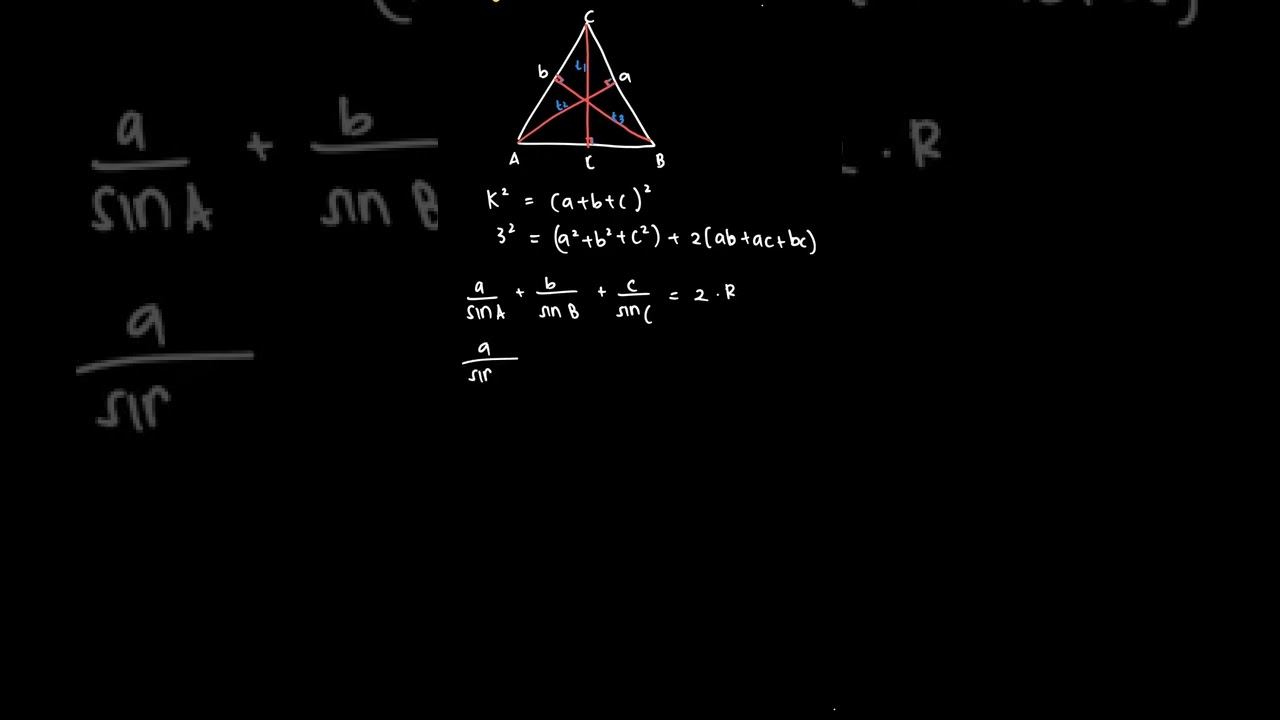 C
b t₁ a
t₂ t₃
A c B
K² = (a+b+c)²
3² = (a²+b²+c²) + 2(ab+ac+bc)
a/sin A + b/sin B + c/sin C = 2 . R
a/sin